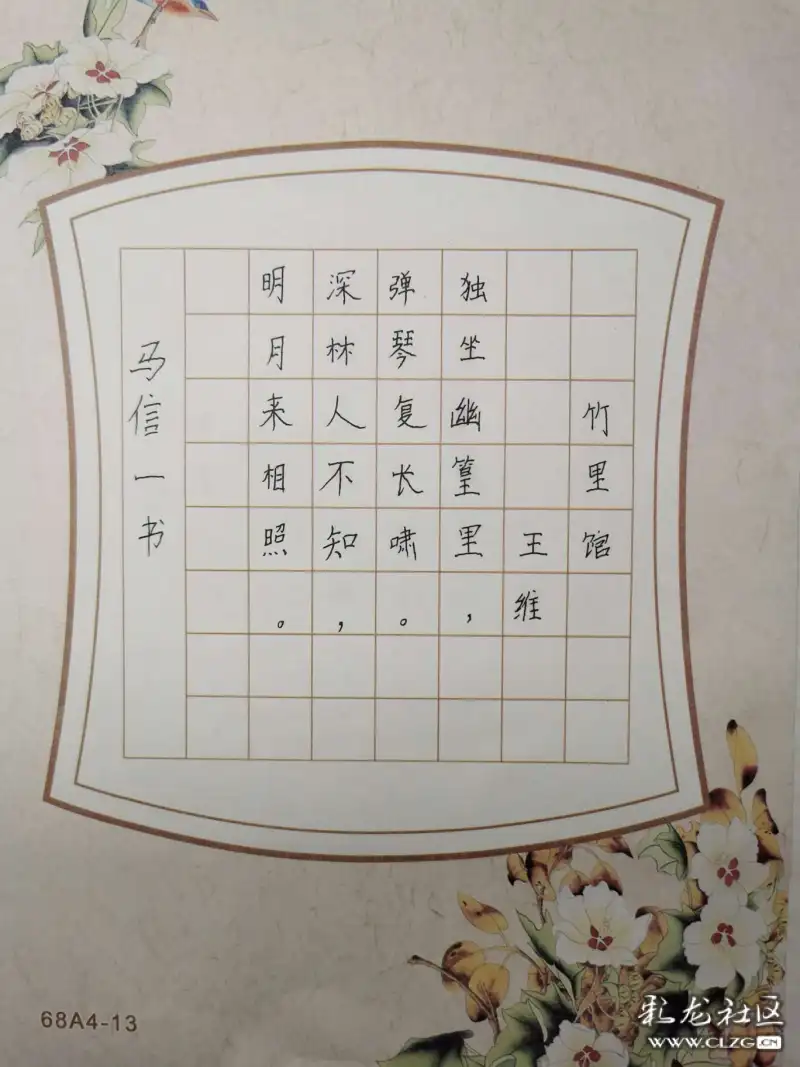 竹里馆
王维
独坐幽篁里，
弹琴复长啸。
深林人不知，
明月来相照。
马信一书
68A4-13
彩龙社区
WWW.CLZG.CN